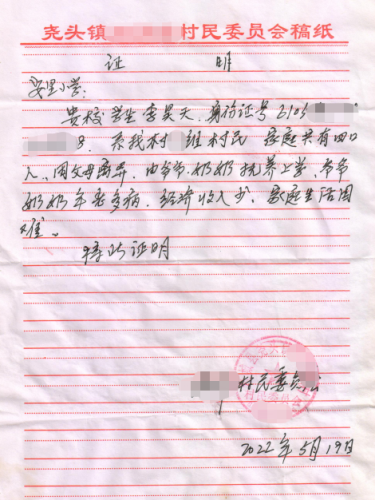 尧头镇 村民委员会稿纸
证 明
安里小学:
贵校学生李昊天,身份证号6105
8. 系我村 班村民 家庭共有四口
人、因父母离异,由爷爷、奶奶抚养上学,爷爷
奶奶年老多病,经济收入少,家庭生活困
难。
特此证明
村民委员会
2022年5月19日